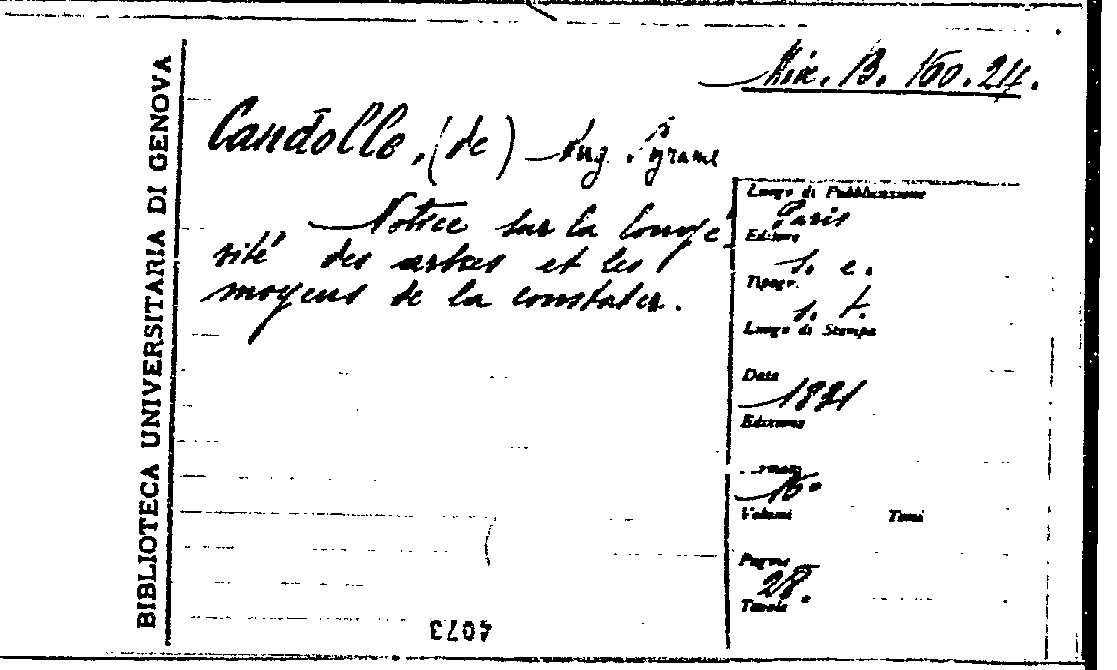 BIBLIOTECA UNIVERSITARIA DI GENOVA
Misc. B. 160.24.
Candolle, (de) Aug. Pyrame
Notice sur la longé-
vité des arbres et les
moyens de la constater.
Luogo di Pubblicazione
Paris
Editore
s. e.
Tipogr.
s. t.
Luogo di Stampa
Data
1831
Edizione
16°
Volumi Tomi
Pagine
28.
Tavole
4073